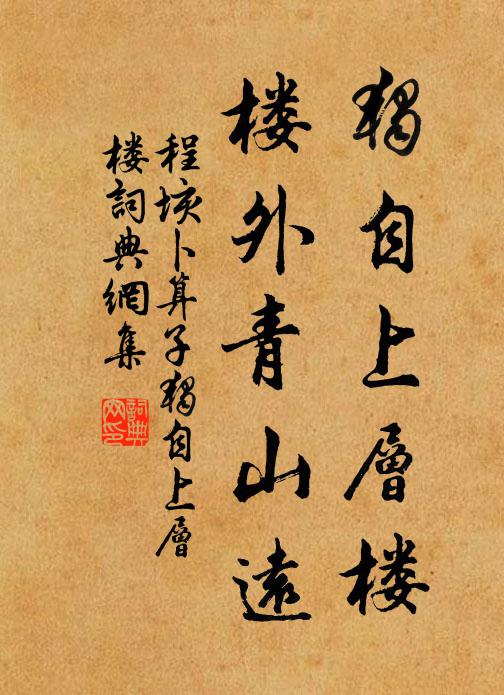 獨自上層楼
楼外青山遠
程垓卜算子獨自上層
楼詞典網集
詞典网印